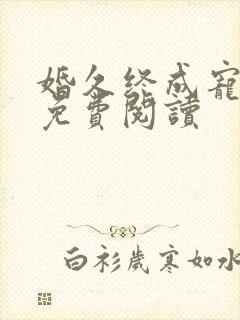 婚久终成寵
免費閱讀
白衫歲寒如水